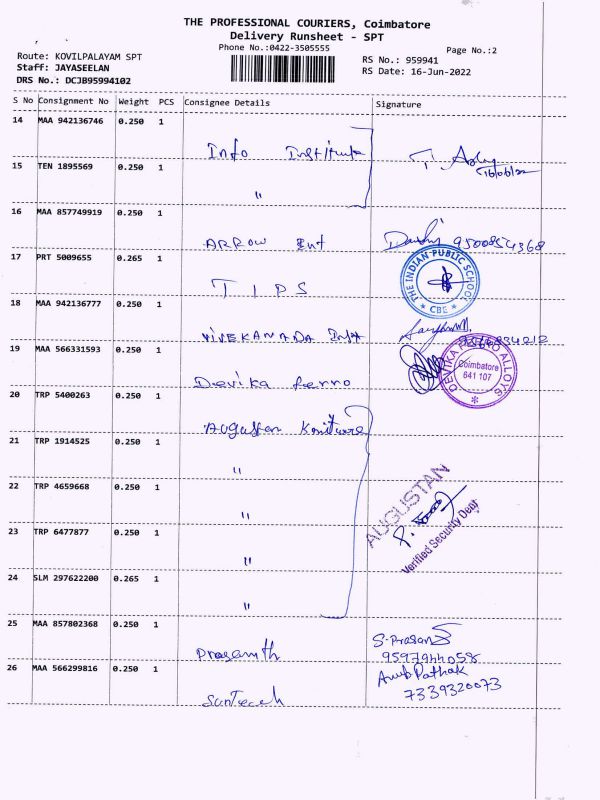 THE PROFESSIONAL COURIERS, Coimbatore
Delivery Runsheet - SPT
Phone No.:0422-3505555
Page No.:2
Route: KOVILPALAYAM SPT
Staff: JAYASEELAN
DRS No.: DCJB95994102
RS No.: 959941
RS Date: 16-Jun-2022
S No Consignment No Weight PCS Consignee Details Signature
14 MAA 942136746 0.250 1
Info Institute
15 TEN 1895569 0.250 1
"
16/06/22
16 MAA 857749919 0.250 1
ARROW Ent 9500854368
17 PRT 5009655 0.265 1
TIPS
THE INDIAN PUBLIC SCHOOL
* CBE *
18 MAA 942136777 0.250 1
VIVEKANADA
19 MAA 566331593 0.250 1
Devika ferro
DEVIKA FERRO ALLOYS
Coimbatore
641 107
20 TRP 5400263 0.250 1
21 TRP 1914525 0.250 1
"
22 TRP 4659668 0.250 1
"
23 TRP 6477877 0.250 1
"
AUGUSTAN
Verified Security Dept
24 SLM 297622200 0.265 1
"
25 MAA 857802368 0.250 1
Prasanth
9597944058
26 MAA 566299816 0.250 1
Anub Pathak
7339320073